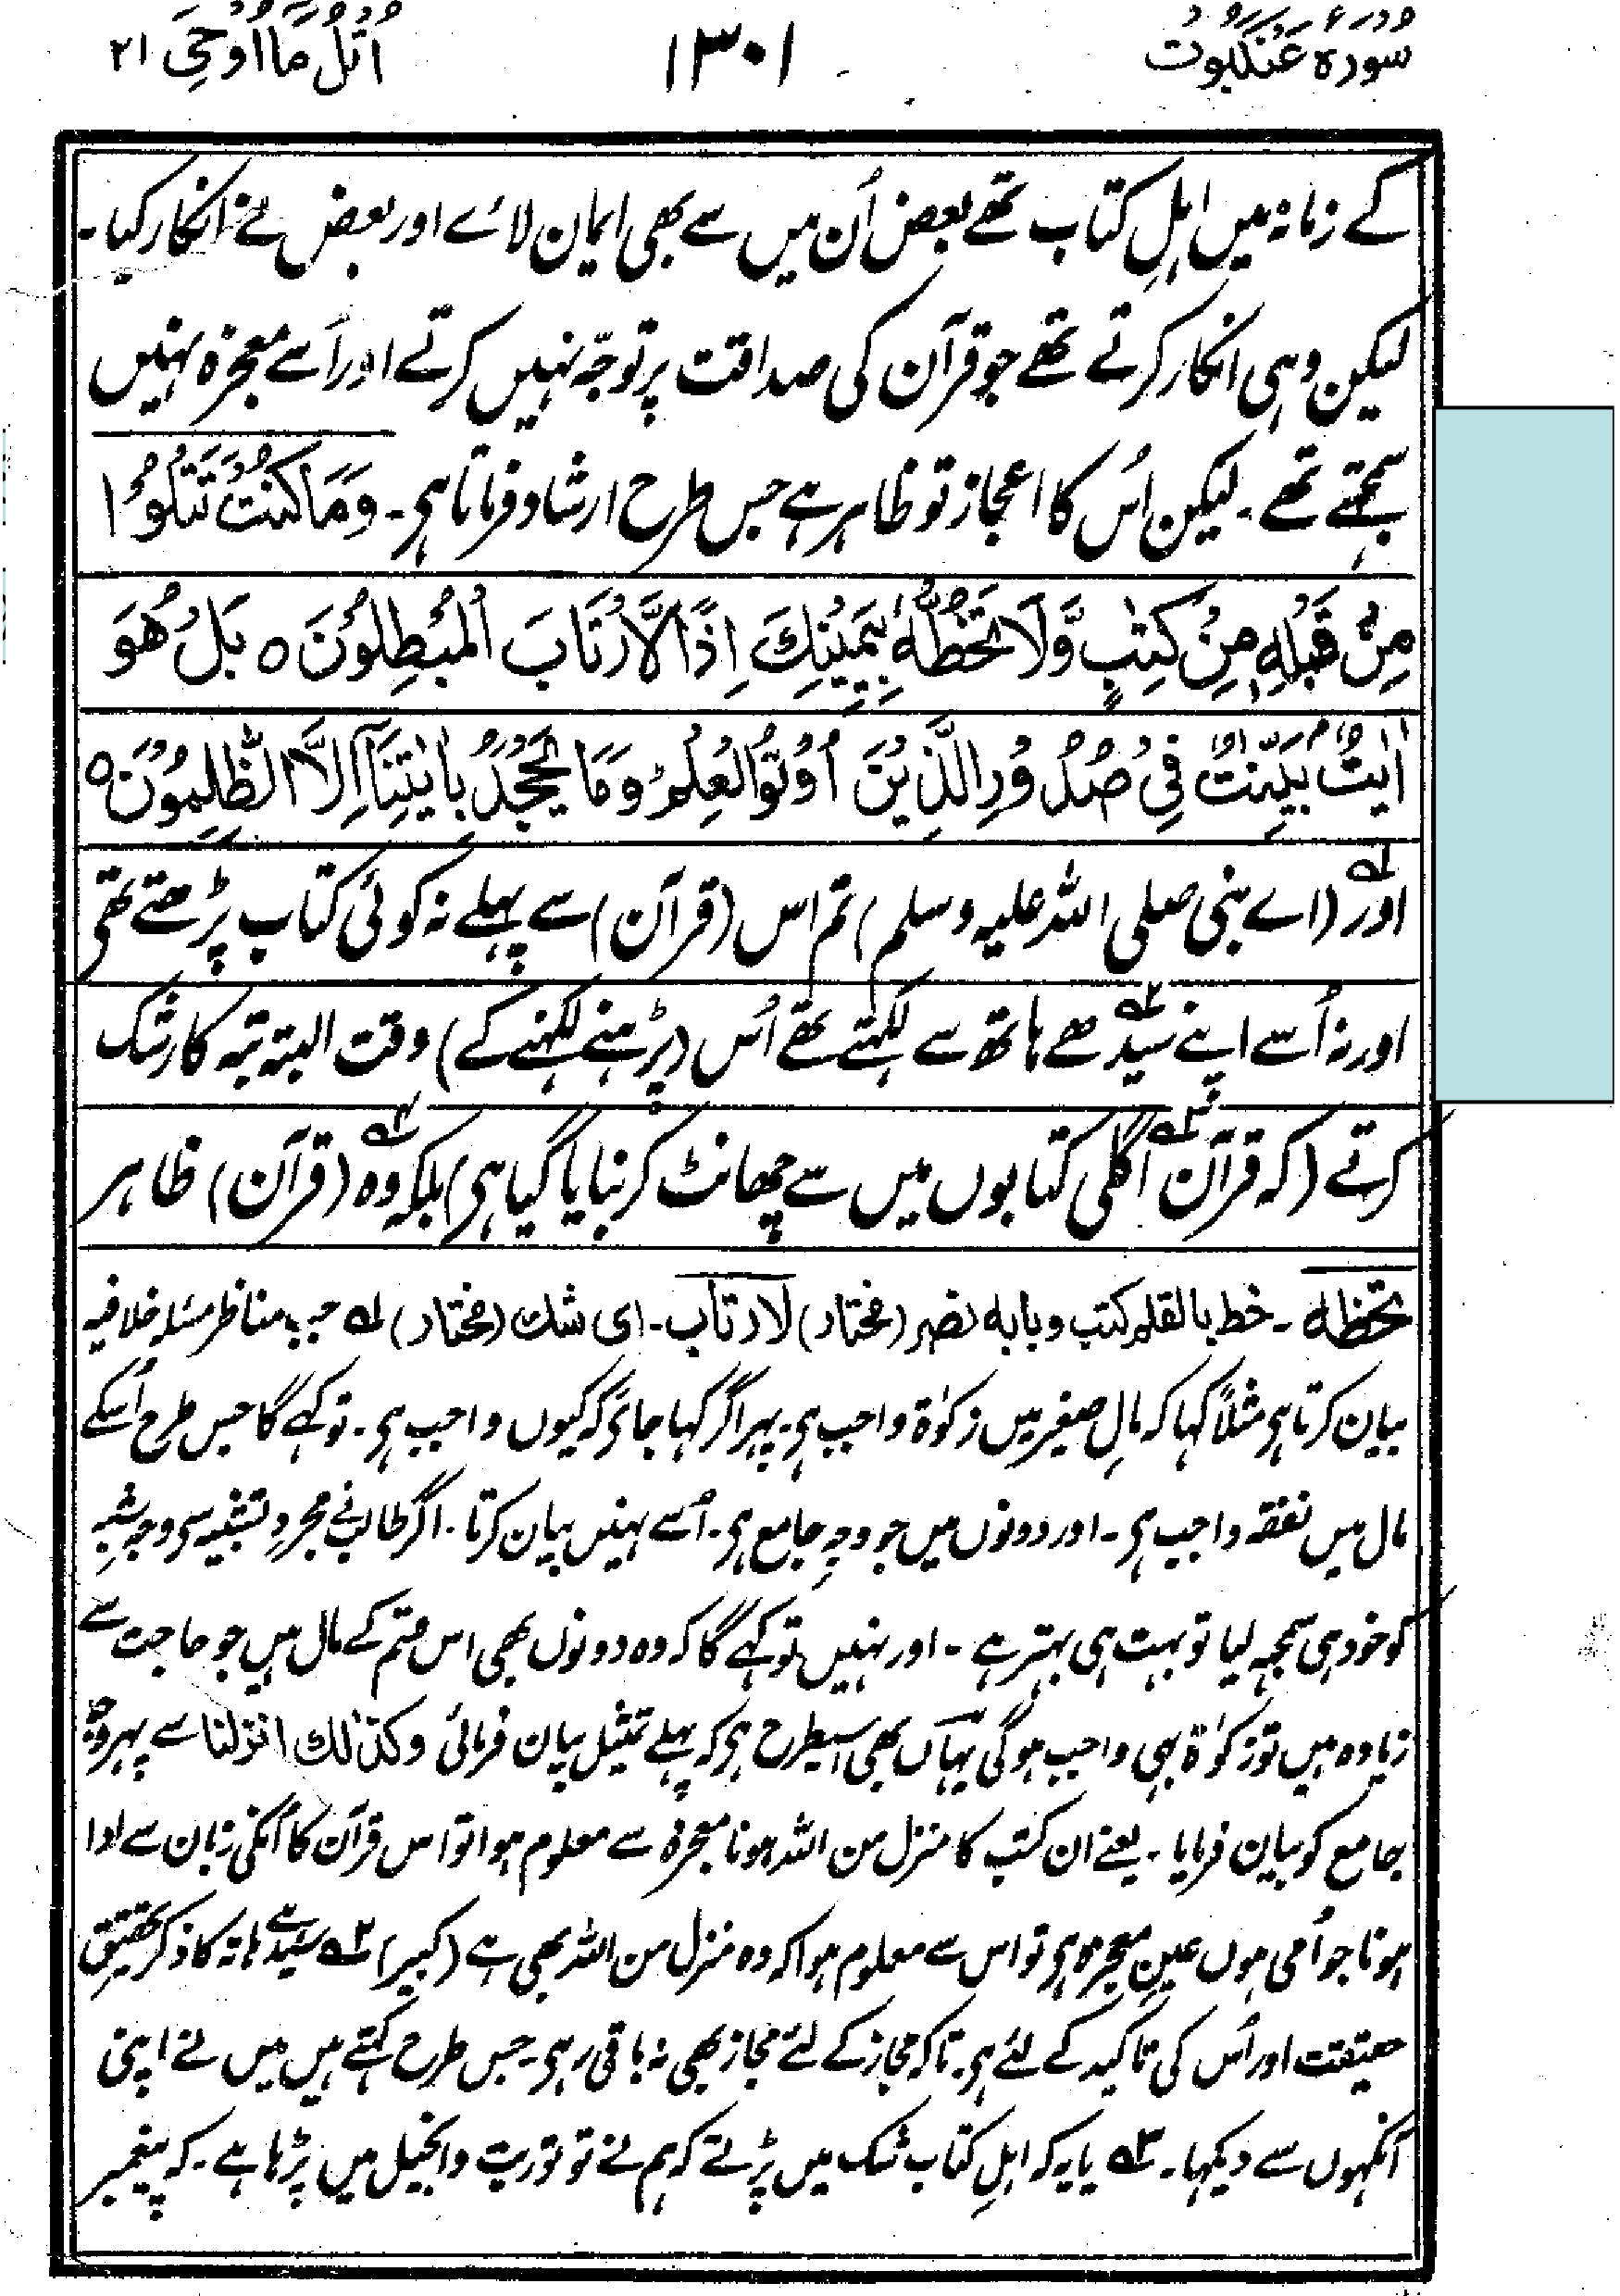 سورہ عنکبوت
۱۳۰۱
اُتْلُ مَا اُوْحِیَ ۲۱
کے زمانہ میں اہلِ کتاب تھے بعض اُن میں سے بھی ایمان لائے اور بعض نے انکار کیا۔
لیکن وہی انکار کرتے تھے جو قرآن کی صداقت پر توجّہ نہیں کرتے اور اُسے معجزہ نہیں
سمجہتے تھے۔ لیکن اُس کا اعجاز تو ظاہر ہے جس طرح ارشاد فرماتا ہی۔ وَمَا كُنْتَ تَتْلُوْا
مِنْ قَبْلِهٖ مِنْ كِتٰبٍ وَّلَا تَخُطُّهٗ بِيَمِيْنِكَ اِذًا لَّارْتَابَ الْمُبْطِلُوْنَ ○ بَلْ هُوَ
اٰيٰتٌۢ بَيِّنٰتٌ فِيْ صُدُوْرِ الَّذِيْنَ اُوْتُوا الْعِلْمَ ؕ وَمَا يَجْحَدُ بِاٰيٰتِنَآ اِلَّا الظّٰلِمُوْنَ ○
اور ۱؎ (اے نبی صلی اللہ علیہ وسلم) تم اس (قرآن) سے پہلے نہ کوئی کتاب پڑھتے تھی
اور نہ اُسے اپنے سیدھے ۲؎ ہاتھ سے لکہتے تھے اُس (پڑہنے لکہنے کے) وقت البتہ تبہ کار شک
کرتے (کہ قرآن ۳؎ اگلی کتابوں میں سے چھانٹ کر بنایا گیا ہی) بلکہ وہ ۴؎ (قرآن) ظاہر
تخطہ۔ خط بالقلم کتب وبابہ نصر (مختار) لارتاب۔ ای شك (مختار) ۱؎ جب مناظر مسئلہ خلافیہ
بیان کرتا ہی مثلاً کہا کہ مالِ صغیر میں زکوٰۃ واجب ہی۔ پہر اگر کہا جائی کہ کیوں واجب ہی۔ تو کہے گا جس طرح اُسکے
مال میں نفقہ واجب ہی۔ اور دونوں میں جو وجہِ جامع ہی۔ اُسے نہیں بیان کرتا۔ اگر طالب نے مجردِ تشبیہ سی وجہِ شبہ
کو خود ہی سمجہہ لیا تو بہت ہی بہتر ہے۔ اور نہیں تو کہے گا کہ وہ دونوں بھی اس قسم کے مال ہیں جو حاجت سے
زیادہ ہیں تو زکوٰۃ بہی واجب ہوگی یہاں بھی اسیطرح ہی کہ پہلے تمثیل بیان فرمائی وکذلك انزلنا سے پہر وجہ
جامع کو بیان فرمایا۔ یعنے ان کتب کا منزل من اللہ ہونا معجزہ سے معلوم ہوا تو اس قرآن کا اُنکی زبان سے ادا
ہونا جو اُمی ہوں عین معجزہ ہی تو اس سے معلوم ہوا کہ وہ منزل من اللہ بھی ہے (کبیر) ۲؎ سیدھے ہاتہ کا ذکر تحقیق
حقیقت اور اُس کی تاکید کے لئے ہی۔ تاکہ مجاز کے لئے مجاز بھی نہ باقی رہی۔ جس طرح کہتے ہیں میں نے اپنی
آنکہوں سے دیکہا۔ ۳؎ یا یہ کہ اہلِ کتاب شک میں پڑتے کہ ہم نے تو توریت وانجیل میں پڑہا ہے۔ کہ پیغمبر